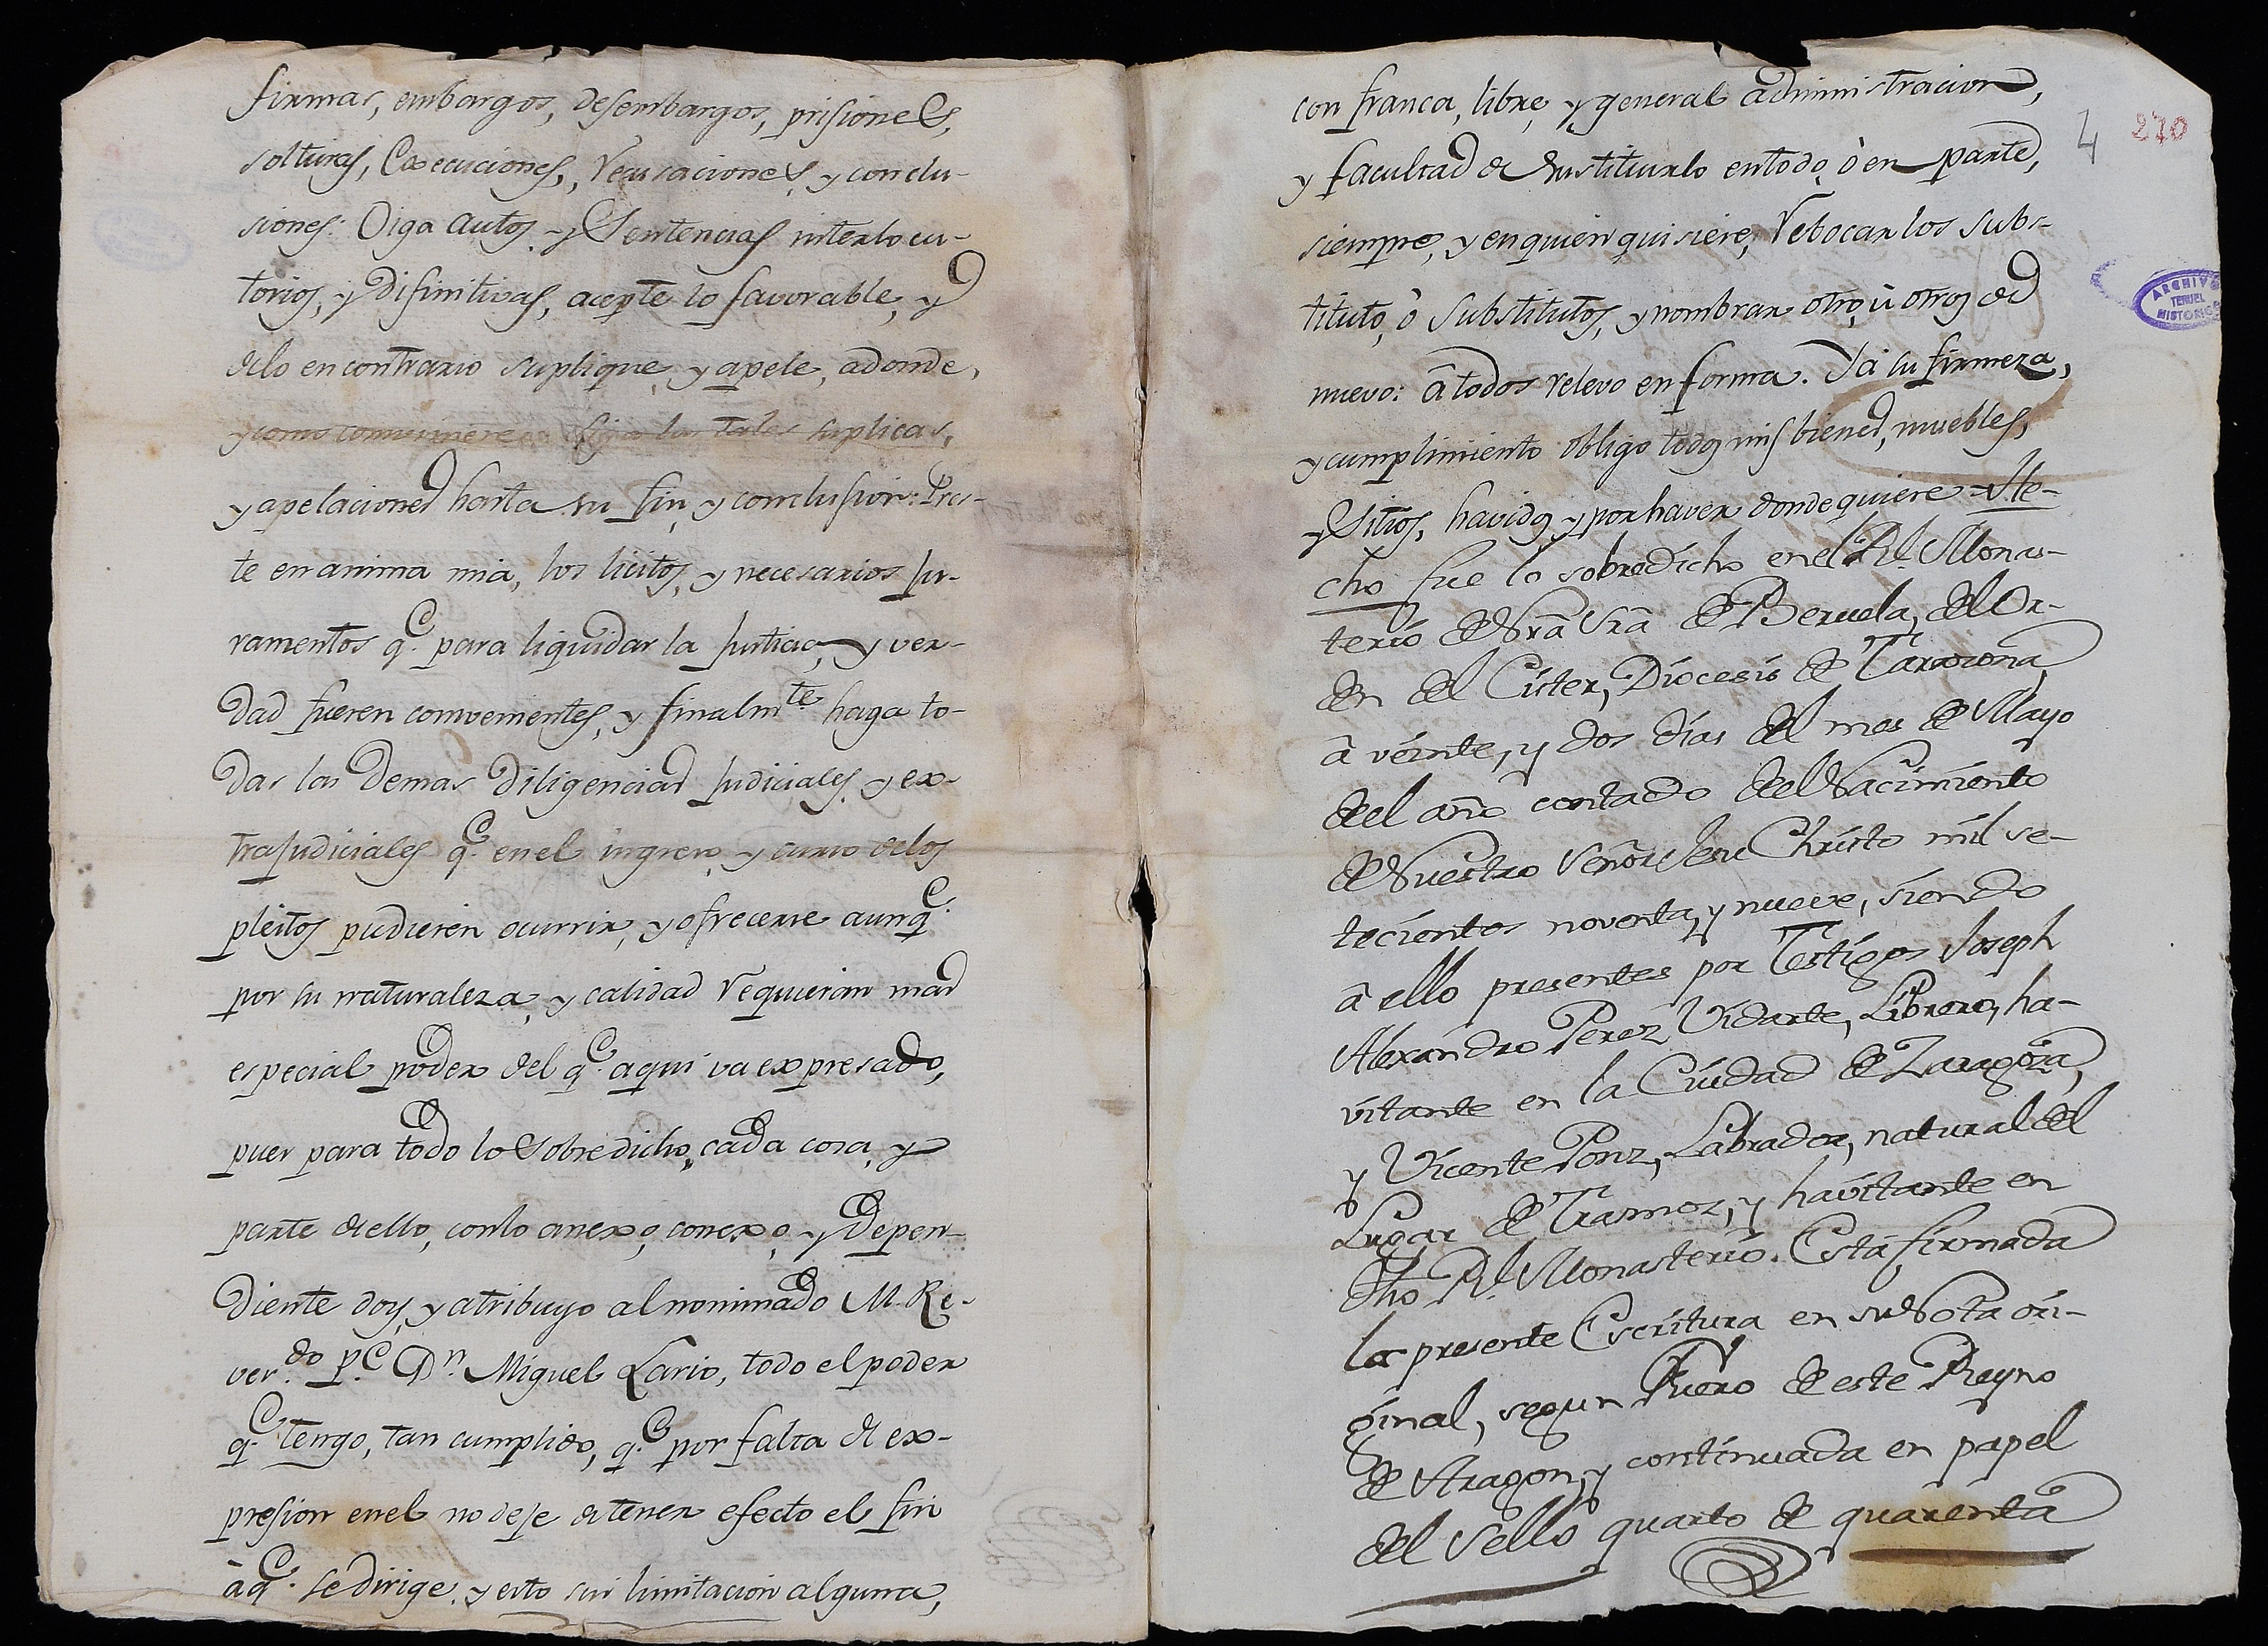 firmas, embargos, desembargos, prisiones,
solturas, Execuciones, recusaciones, y conclu-
siones: Oiga autos, y Sentencias interlocu-
torios, y Difinitivas, acepte lo favorable, y
delo en contrario suplique, y apele, adonde,
y como conviniere, y siga las tales suplicas,
y apelaciones hasta su fin, y conclusion: Pres-
te en anima mia, los licitos, y necesarios ju-
ramentos q.e para liquidar la justicia, y ver-
dad fueren convenientes, y finalm.te haga to-
das las demas Diligencias judiciales, y ex-
trajudiciales q.e en el ingreso, y curso delos
pleitos pudieren ocurrir, y ofrecerse aunq.e
por su naturaleza, y calidad requieran mas
especial poder del q.e aqui va expresado,
pues para todo lo sobredicho, cada cosa, y
parte dello, con lo anexo, conexo, y Depen-
diente doy, y atribuyo al nominado M. Re-
ver.do p.e Dn. Miguel Lario, todo el poder
q.e tengo, tan cumplido, q.e por falta de ex-
presion en el no deje de tener efecto el fin
à q.e se dirige, y esto sin limitacion alguna,
4 270
con franca, libre, y general administracion,
y facultad de substituirlo en todo, ò en parte,
siempre, y en quien quisiere, rebocar los subs-
tituto, ò substitutos, y nombrar otro, ù otros de
nuevo: à todos relevo en forma. Y à su firmeza,
y cumplimiento obligo todos mis bienes, muebles,
y Sitios, havidos, y por haver donde quiere = He-
cho fue lo sobredicho en el Rl. Monas-
terio de Nrã Srã de Beruela, del Or-
den del Cister, Diocesis de Tarazona
à veinte, y dos dias del mes de Mayo
del año contado del Nacimiento
de Nuestro Señor Jesu Christo mil se-
tecientos noventa, y nueve, siendo
à ello presentes por Testigos Joseph
Alexandro Perez Vidarte, Librero, ha-
vitante en la Ciudad de Zaragoza,
y Vicente Ponz, Labrador, natural del
Lugar de Trasmoz, y havitante en
dho Rl. Monasterio. Está firmada
la presente Escritura en su Nota ori-
ginal, segun Fuero de este Reyno
de Aragon, y continuada en papel
del Sello quarto de quarenta
ARCHIVO
TERUEL
HISTORICO